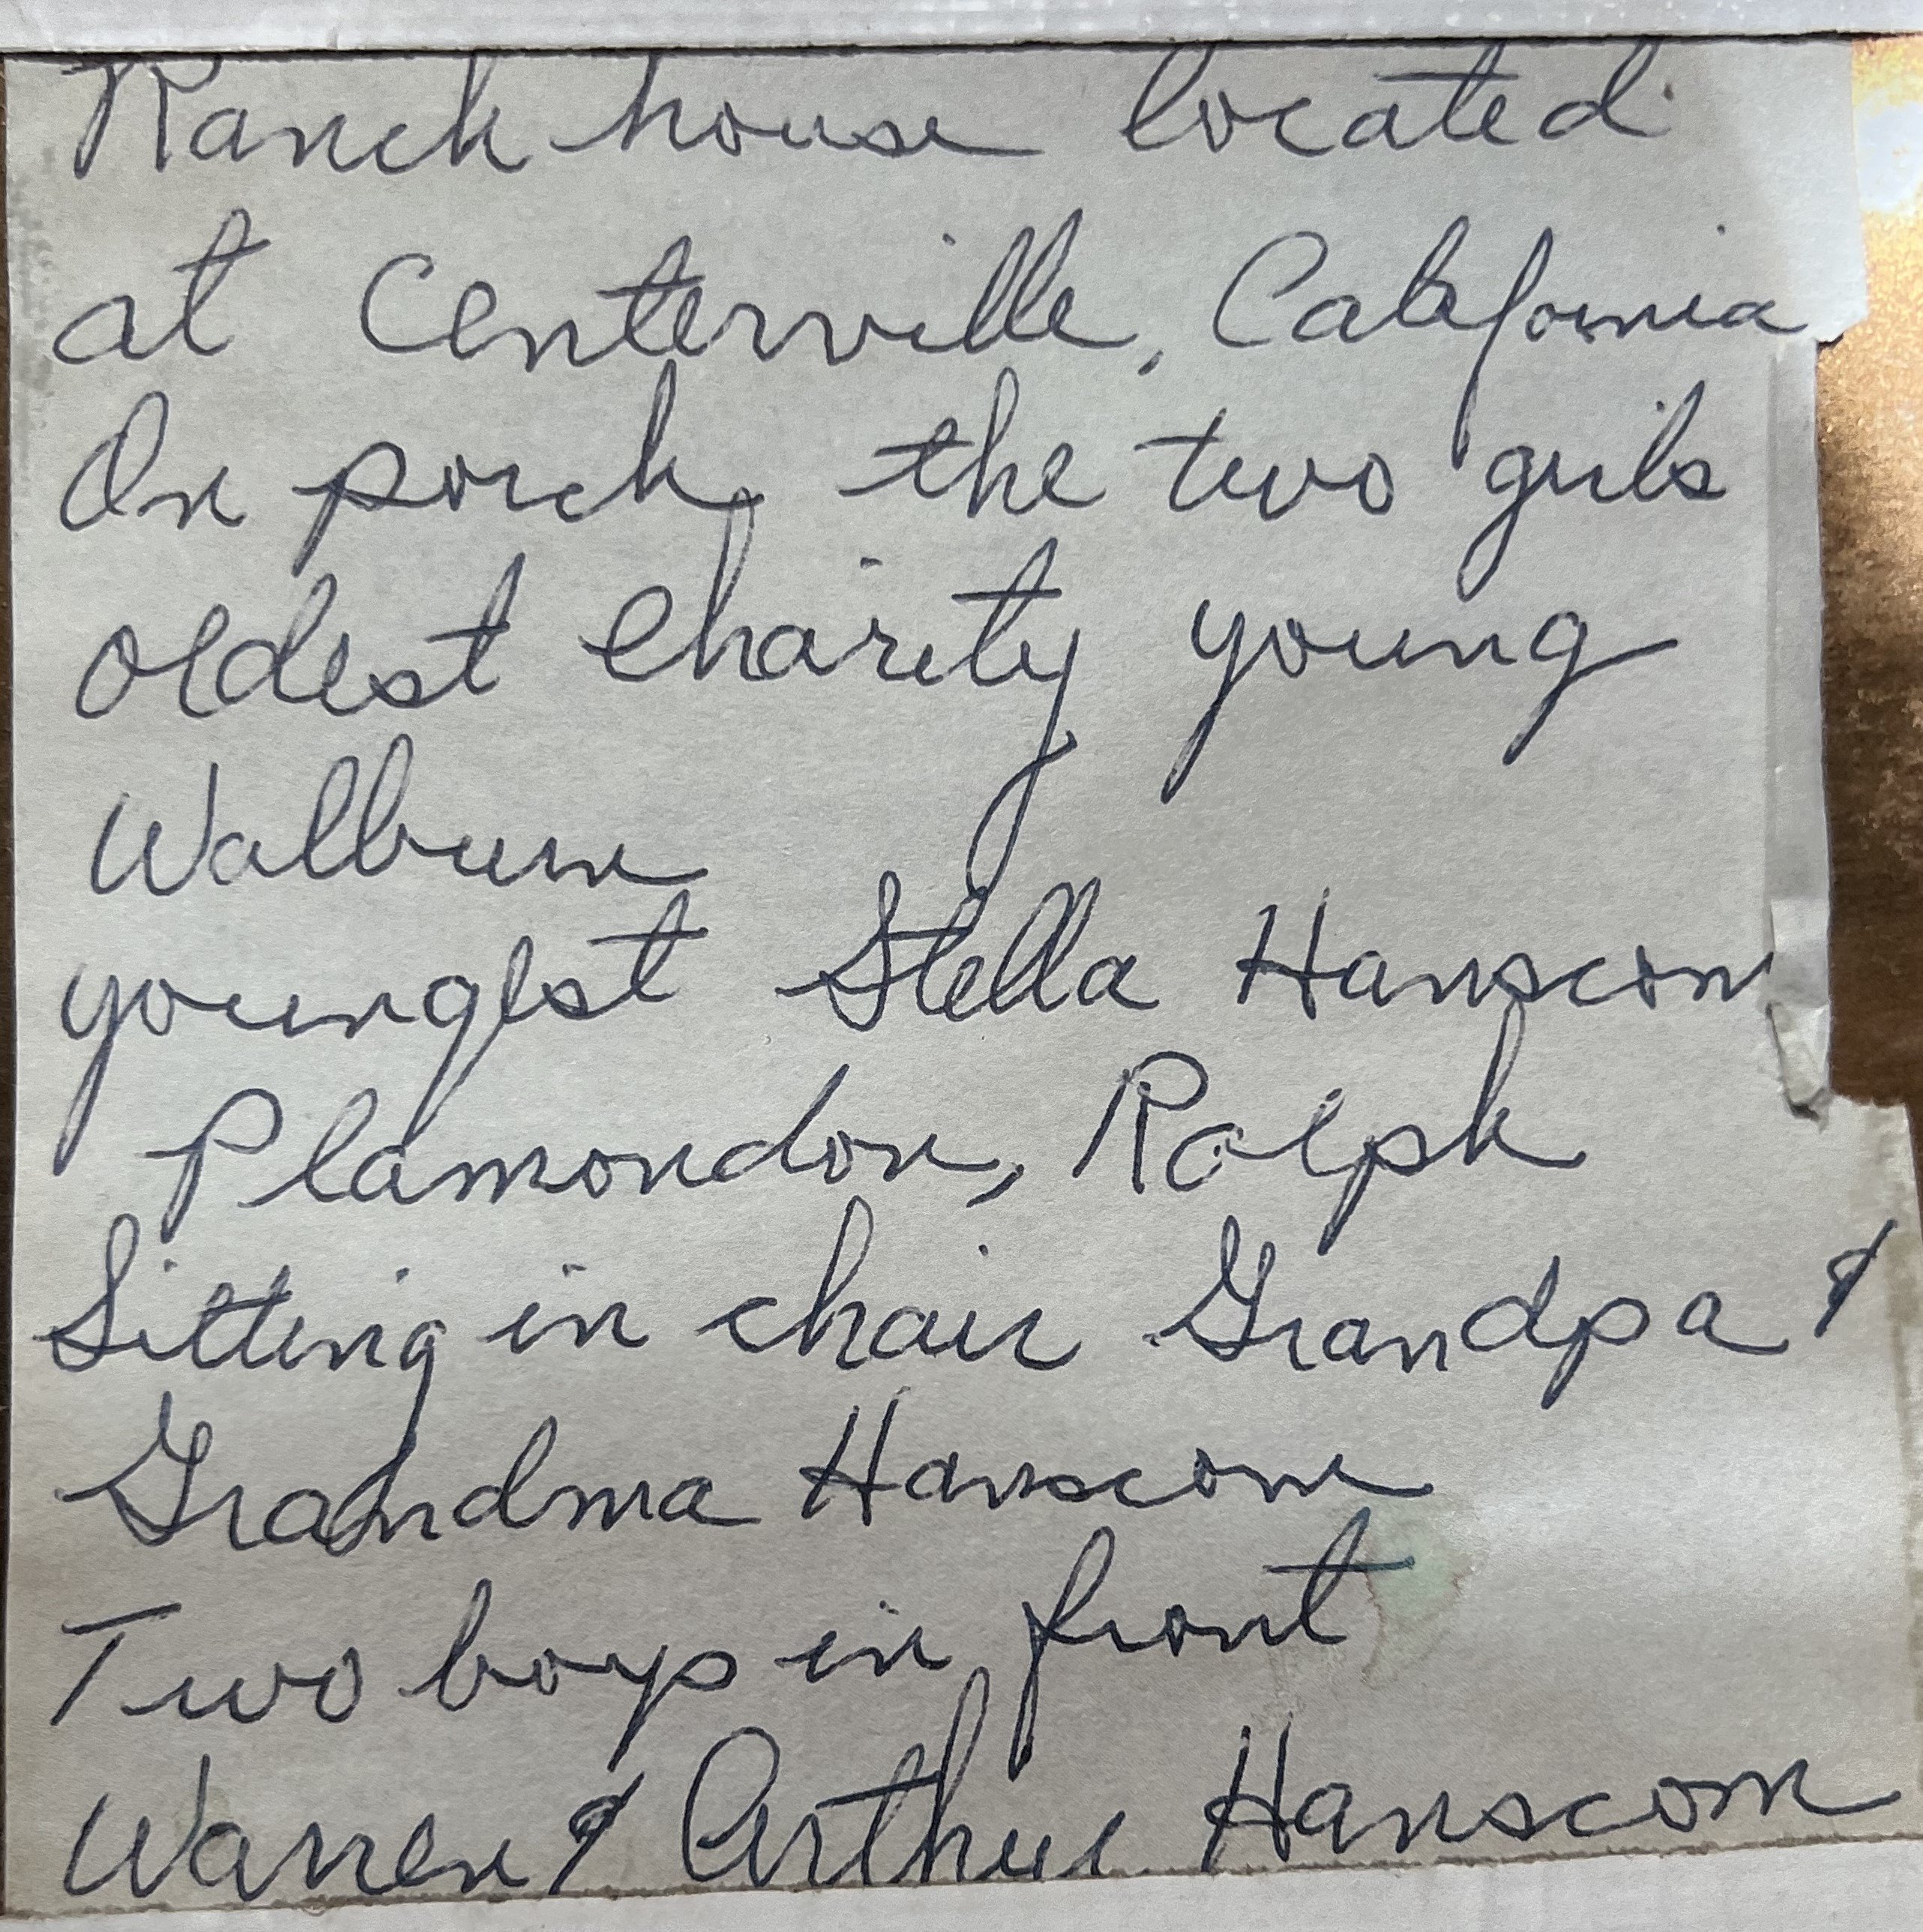 Ranch house located
at Centerville, California
On porch, the two girls
oldest Charity young
Walburn
youngest Stella Hanscom
Plamondon, Ralph
Sitting in chair Grandpa &
Grandma Hanscom
Two boys in front
Warren & Arthur Hanscom